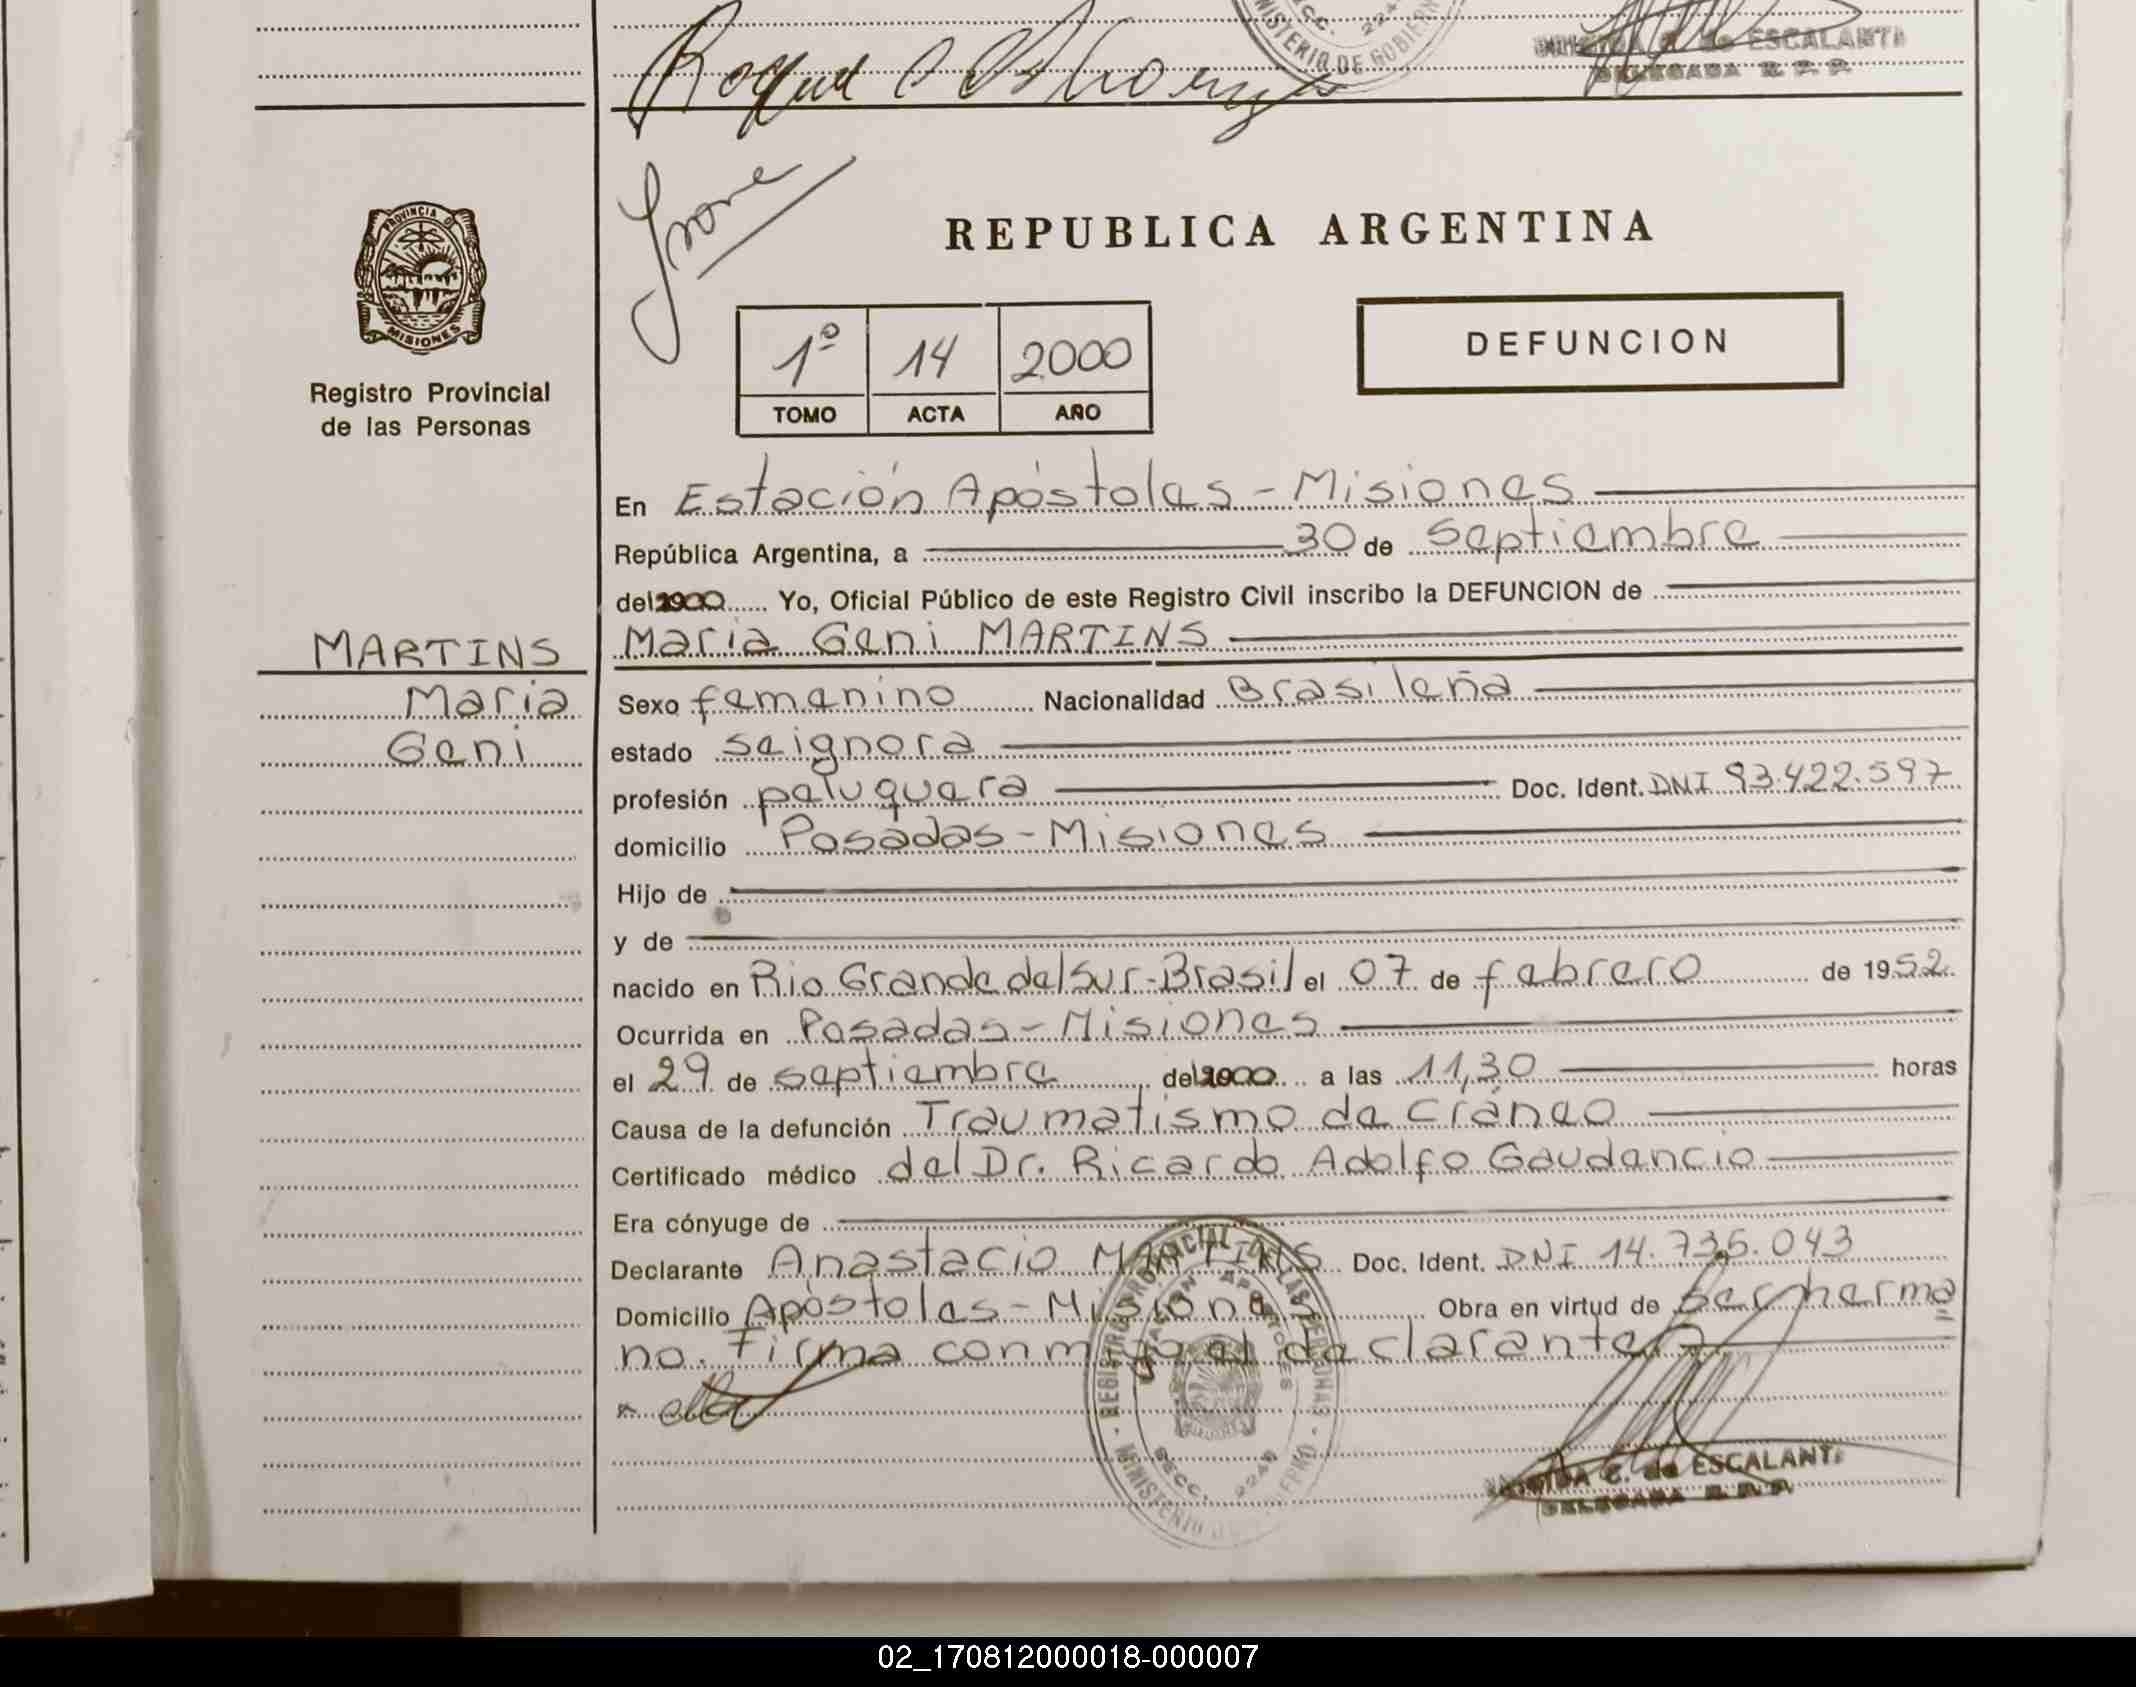 Roque
ESCALANTE
DELEGADA R. P. P.
PROVINCIA DE
MISIONES
Registro Provincial
de las Personas
REPUBLICA ARGENTINA
1º 14 2000
TOMO ACTA AÑO
DEFUNCION
En Estación Apóstoles - Misiones
República Argentina, a 30 de septiembre
del 2000 Yo, Oficial Público de este Registro Civil inscribo la DEFUNCION de
MARTINS Maria Geni MARTINS
Maria Sexo femenino Nacionalidad Brasileña
Geni estado seignora
profesión peluquera Doc. Ident. DNI 93.422.597
domicilio Posadas - Misiones
Hijo de
y de
nacido en Rio Grande del Sur - Brasil el 07 de febrero de 1952
Ocurrida en Posadas - Misiones
el 29 de septiembre del 2000 a las 11,30 horas
Causa de la defunción Traumatismo de cráneo
Certificado médico del Dr. Ricardo Adolfo Gaudencio
Era cónyuge de
Declarante Anastacio MARTINS Doc. Ident. DNI 14.735.043
Domicilio Apóstoles - Misiones Obra en virtud de Ser herma
no. Firma conmigo el declarante
REGISTRO PROVINCIAL DE LAS PERSONAS
ESTACION APOSTOLES
SECC. 224
MINISTERIO DE GOBIERNO
C. de ESCALANTE
DELEGADA R. P. P.
02_170812000018-000007